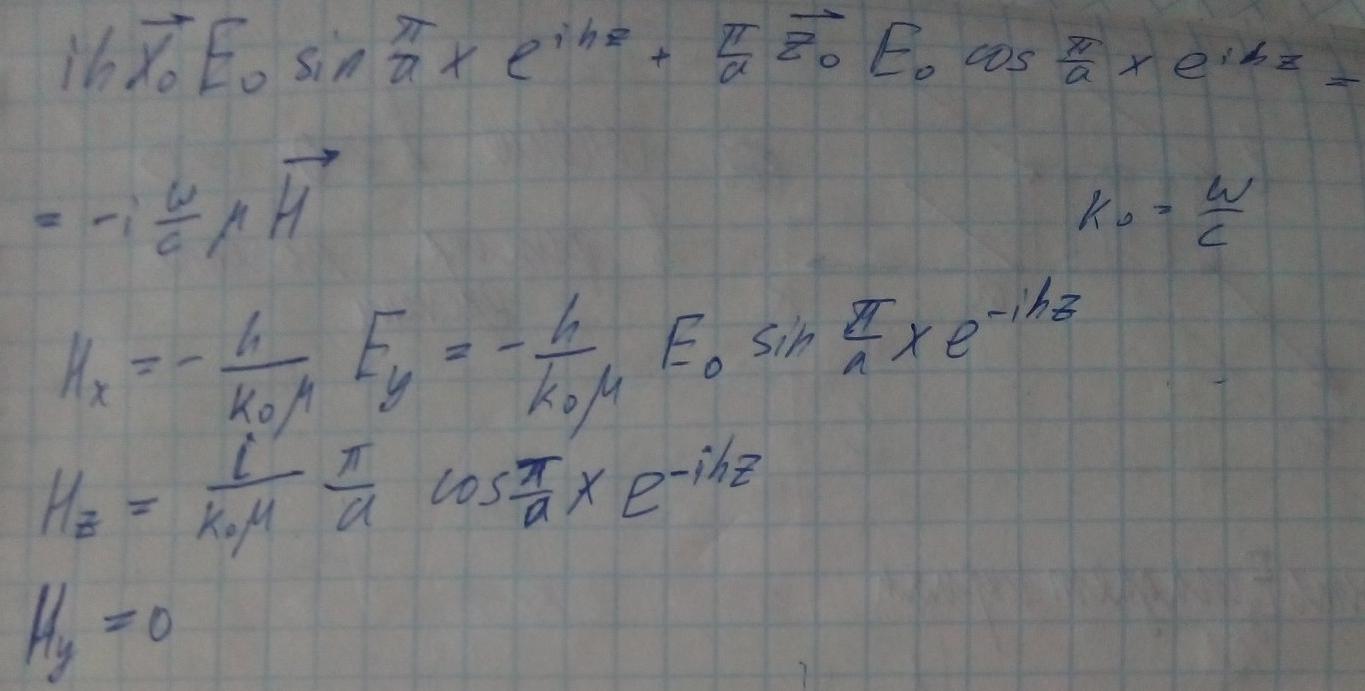 ih x⃗₀ E₀ sin π/a x e^{ihz} + π/a z⃗₀ E₀ cos π/a x e^{ihz} =
= -i ω/c μ H⃗ k₀ = ω/c
Hₓ = - h/(k₀μ) E_y = - h/(k₀μ) E₀ sin π/a x e^{-ihz}
H_z = i/(k₀μ) π/a cos π/a x e^{-ihz}
H_y = 0